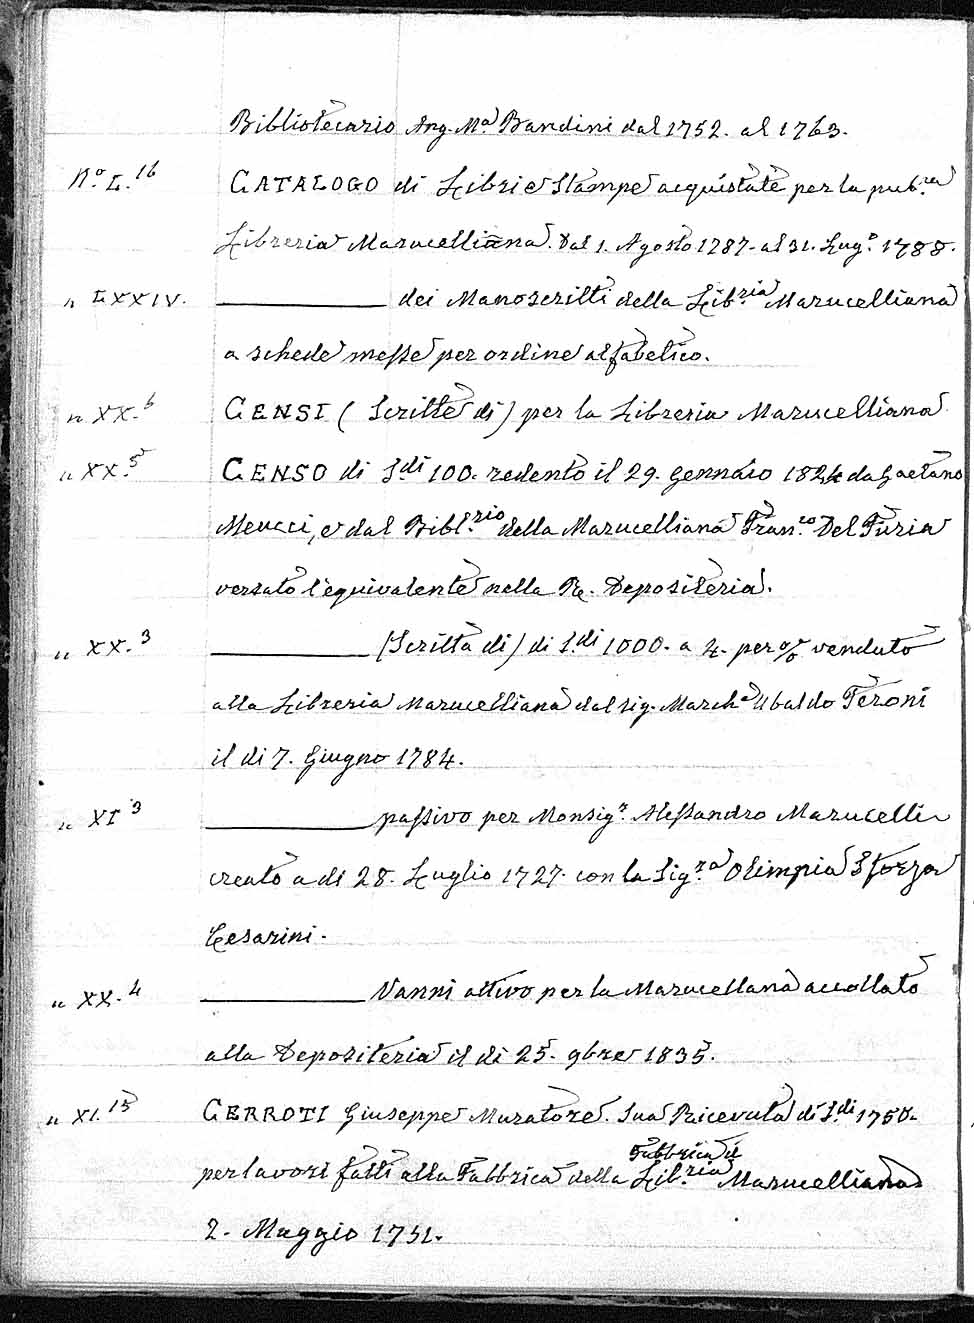 Bibliotecario Ang. Mª Bandini dal 1752. al 1763.
Nº L.16 CATALOGO di Libri e Stampe acquistate per la pub.ca
Libreria Marucelliana. Dal 1. Agosto 1787. al 31. Lugº 1788.
" LXXIV. ———— dei Manoscritti della Lib.ria Marucelliana
a schede messe per ordine alfabetico.
" XX.6 CENSI (Scritte di) per la Libreria Marucelliana
" XX.5 CENSO di S.di 100. redento il 29. Gennaio 1824 da Gaetano
Meucci, e dal Bibl.rio della Marucelliana Fran.co Del Furia
versato l'equivalente nella Re. Depositeria.
" XX.3 ———— (Scritta di) di S.di 1000. a 4. per % venduto
alla Libreria Marucelliana dal Sig. March.e Ubaldo Feroni
il di 7. Giugno 1784.
" XI3 ———— passivo per Monsig.r Alessandro Marucelli
creato a dì 28. Luglio 1727. con la Sig.ra Olimpia Sforza
Cesarini.
" XX.4 ———— Vanni attivo per la Marucellana accollato
alla Depositeria il di 25. 9bre 1835.
" XI.15 CERROTI Giuseppe Muratore. Sua Ricevuta di S.di 1750.
Fabbrica di
per lavori fatti alla Fabbrica della Lib.ria Marucelliana
2. Maggio 1751.